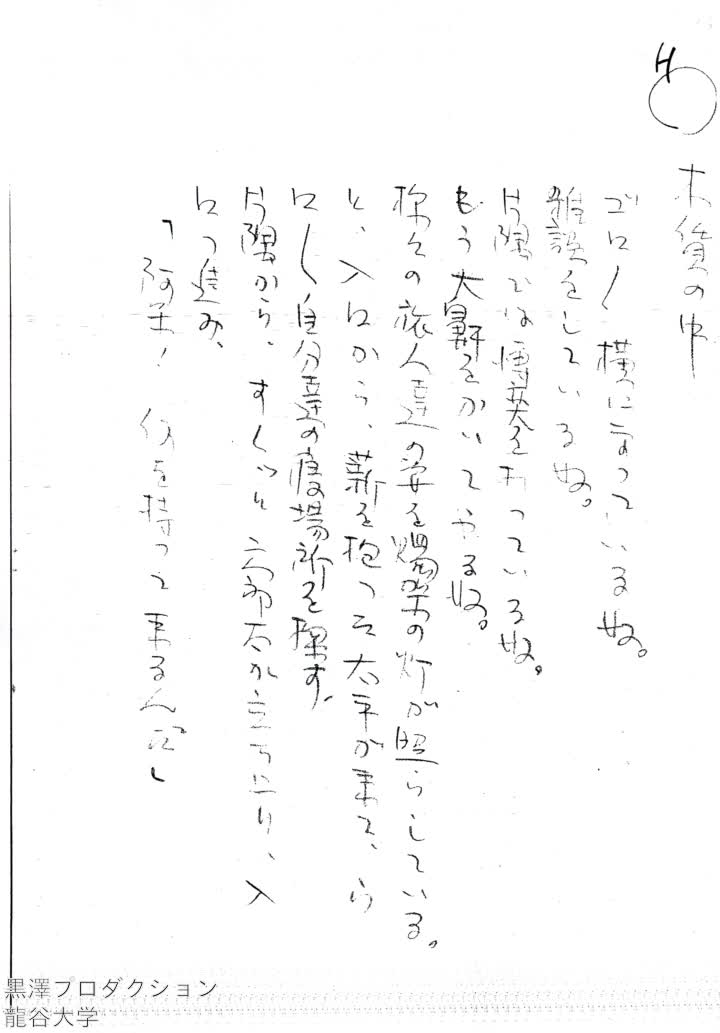 H
木賃の中
ゴロ〱横になっている奴。
雑談をしている奴。
片隅では博奕をうっている奴。
もう大鼾をかいてやる奴。
様々の旅人達の姿を燭架の灯が照らしている。
と、入口から、薪を抱った太平が来て、
自分達の寝場所を探す。
片隅から、すく〱と 六郎太が立ち上り、入
口へ進み、
「阿呆！ 何を持って来るんだ」
黒澤プロダクション
龍谷大学